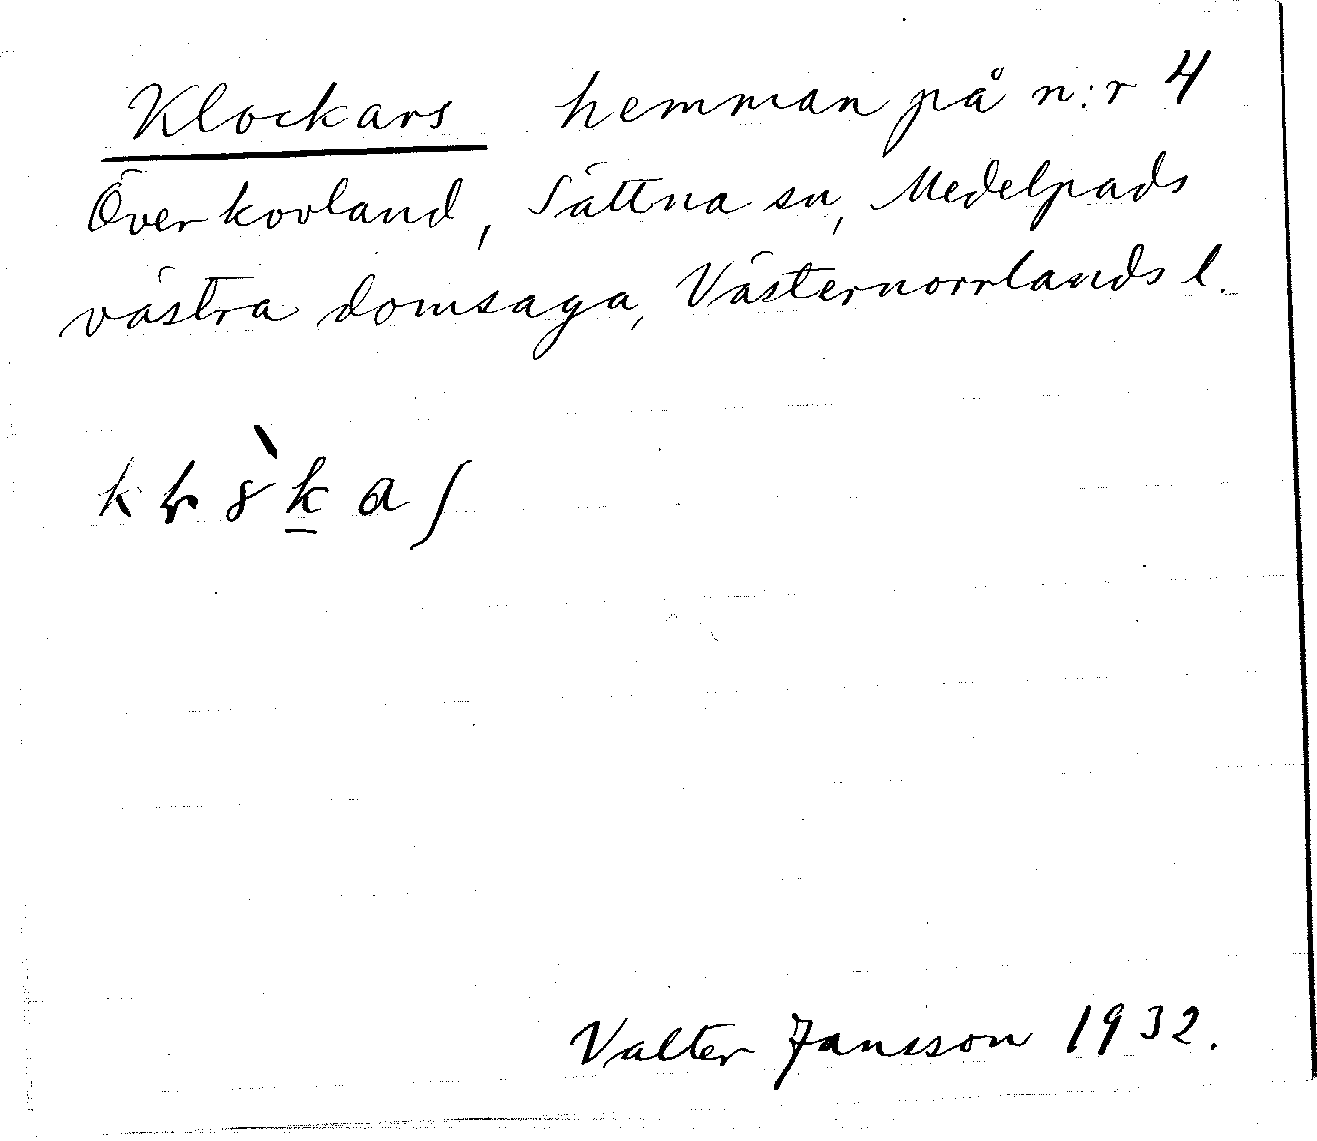 Klockars hemman på n:r 4
Överkovland, Sättna sn, Medelpads
västra domsaga, Västernorrlands l.
Valter Jansson 1932.